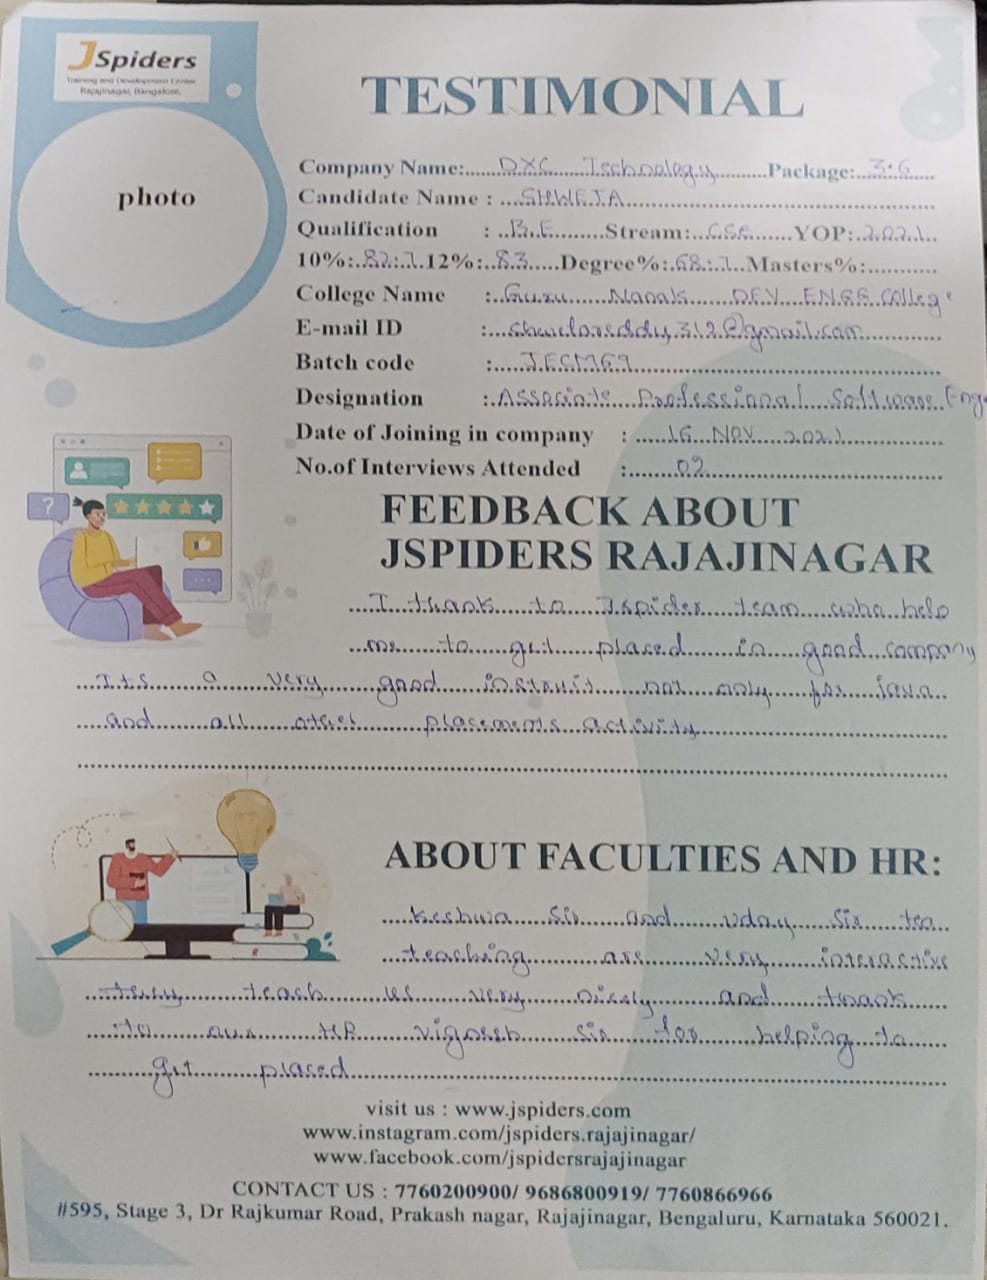 JSpiders
Training and Development Center
Rajajinagar, Bangalore.
TESTIMONIAL
photo
Company Name: DXC Technology Package: 3.6
Candidate Name : SHWETA
Qualification : B.E Stream: CSE YOP: 2021
10%: 82.1 12%: 83 Degree%: 68.1 Masters%:
College Name : Guru Nanak DEV ENGG College
E-mail ID :
Batch code : JECM69
Designation : Associate Professional Software Eng
Date of Joining in company : 16 NOV 2021
No.of Interviews Attended : 02
FEEDBACK ABOUT
JSPIDERS RAJAJINAGAR
I thank to Jspider team who help
me to get placed in good company
Its a very good not only for java
and all other placements activity
ABOUT FACULTIES AND HR:
Keshwa sir and Uday sir
teaching are very interactive
they teach us very nicely and thank
to our HR vignesh sir for helping to
get placed
visit us : www.jspiders.com
www.instagram.com/jspiders.rajajinagar/
www.facebook.com/jspidersrajajinagar
CONTACT US : 7760200900/ 9686800919/ 7760866966
#595, Stage 3, Dr Rajkumar Road, Prakash nagar, Rajajinagar, Bengaluru, Karnataka 560021.